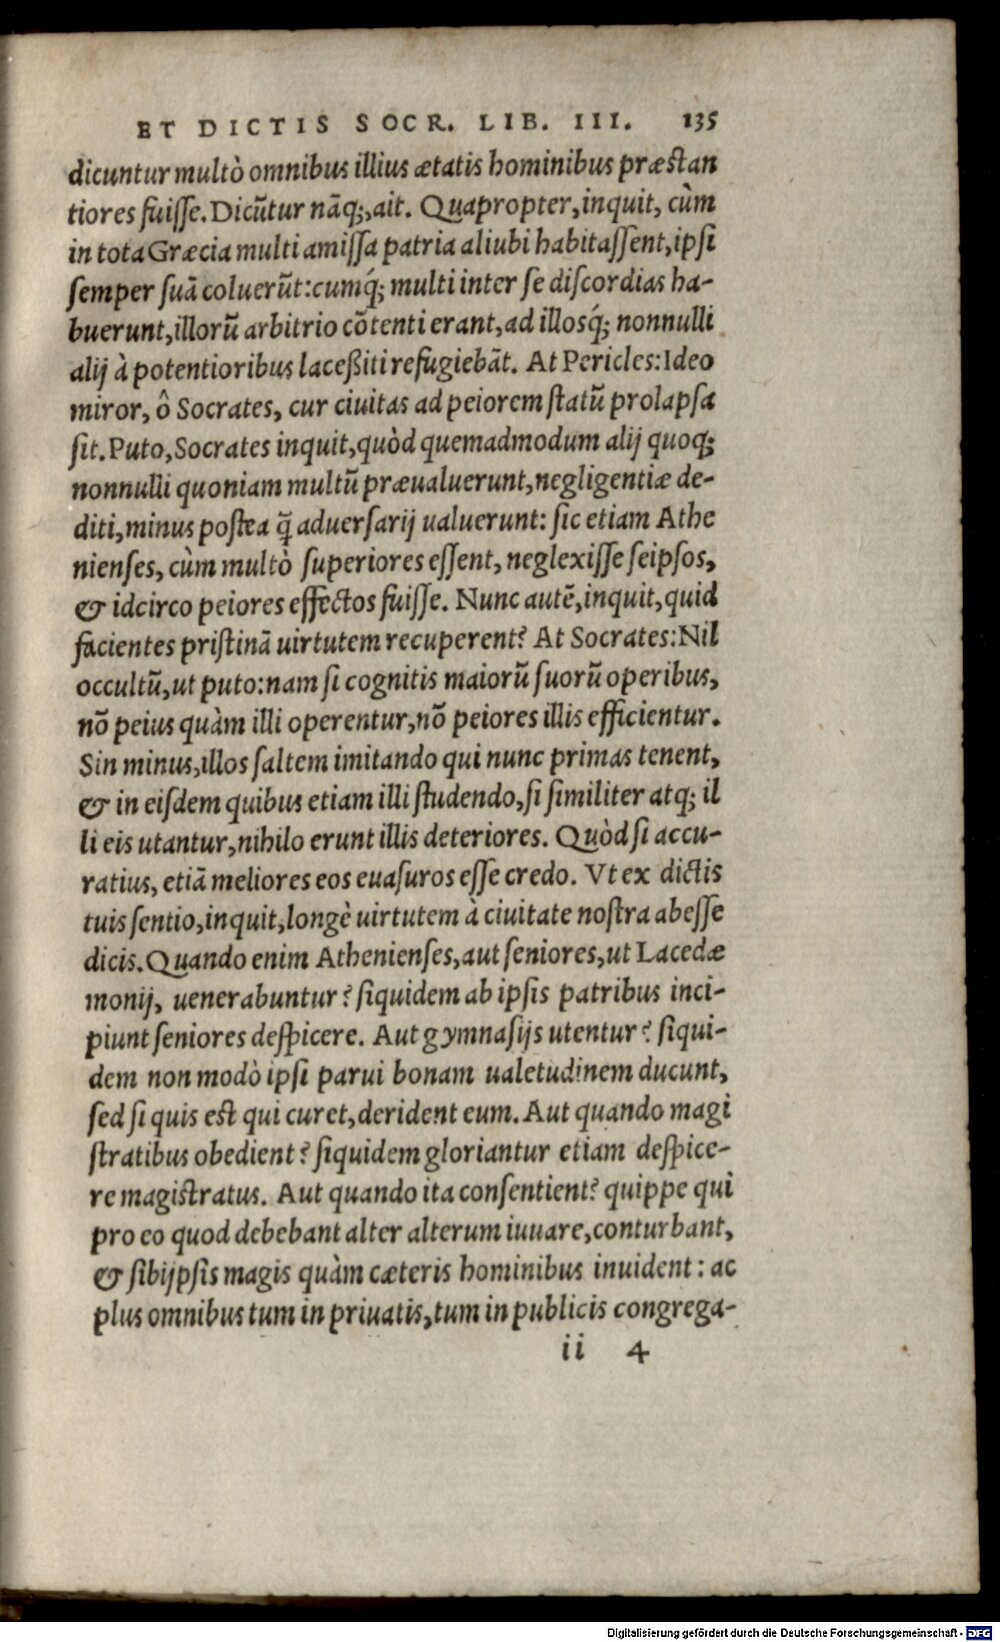 ET DICTIS SOCR. LIB. III. 135
dicuntur multò omnibus illius ætatis hominibus præstan
tiores fuisse. Dicũtur nãq;, ait. Quapropter, inquit, cùm
in tota Græcia multi amissa patria aliubi habitassent, ipsi
semper suã coluerũt: cumq́; multi inter se discordias ha-
buerunt, illorũ arbitrio cõtenti erant, ad illosq́; nonnulli
alij à potentioribus lacessiti refugiebãt. At Pericles: Ideo
miror, ô Socrates, cur ciuitas ad peiorem statũ prolapsa
sit. Puto, Socrates inquit, quòd quemadmodum alij quoq;
nonnulli quoniam multũ præualuerunt, negligentiæ de-
diti, minus postea q̃ aduersarij ualuerunt: sic etiam Athe
nienses, cùm multò superiores essent, neglexisse seipsos,
& idcirco peiores effectos fuisse. Nunc autẽ, inquit, quid
facientes pristinã uirtutem recuperent? At Socrates: Nil
occultũ, ut puto: nam si cognitis maiorũ suorũ operibus,
nõ peius quàm illi operentur, nõ peiores illis efficientur.
Sin minus, illos saltem imitando qui nunc primas tenent,
& in eisdem quibus etiam illi studendo, si similiter atq; il
li eis utantur, nihilo erunt illis deteriores. Quòd si accu-
ratius, etiã meliores eos euasuros esse credo. Vt ex dictis
tuis sentio, inquit, longè uirtutem à ciuitate nostra abesse
dicis. Quando enim Athenienses, aut seniores, ut Lacedæ
monij, uenerabuntur? siquidem ab ipsis patribus inci-
piunt seniores despicere. Aut gymnasijs utentur? siqui-
dem non modò ipsi parui bonam ualetudinem ducunt,
sed si quis est qui curet, derident eum. Aut quando magi
stratibus obedient? siquidem gloriantur etiam despice-
re magistratus. Aut quando ita consentient? quippe qui
pro eo quod debebant alter alterum iuuare, conturbant,
& sibijpsis magis quàm cæteris hominibus inuident: ac
plus omnibus tum in priuatis, tum in publicis congrega-
ii 4
Digitalisierung gefördert durch die Deutsche Forschungsgemeinschaft - DFG